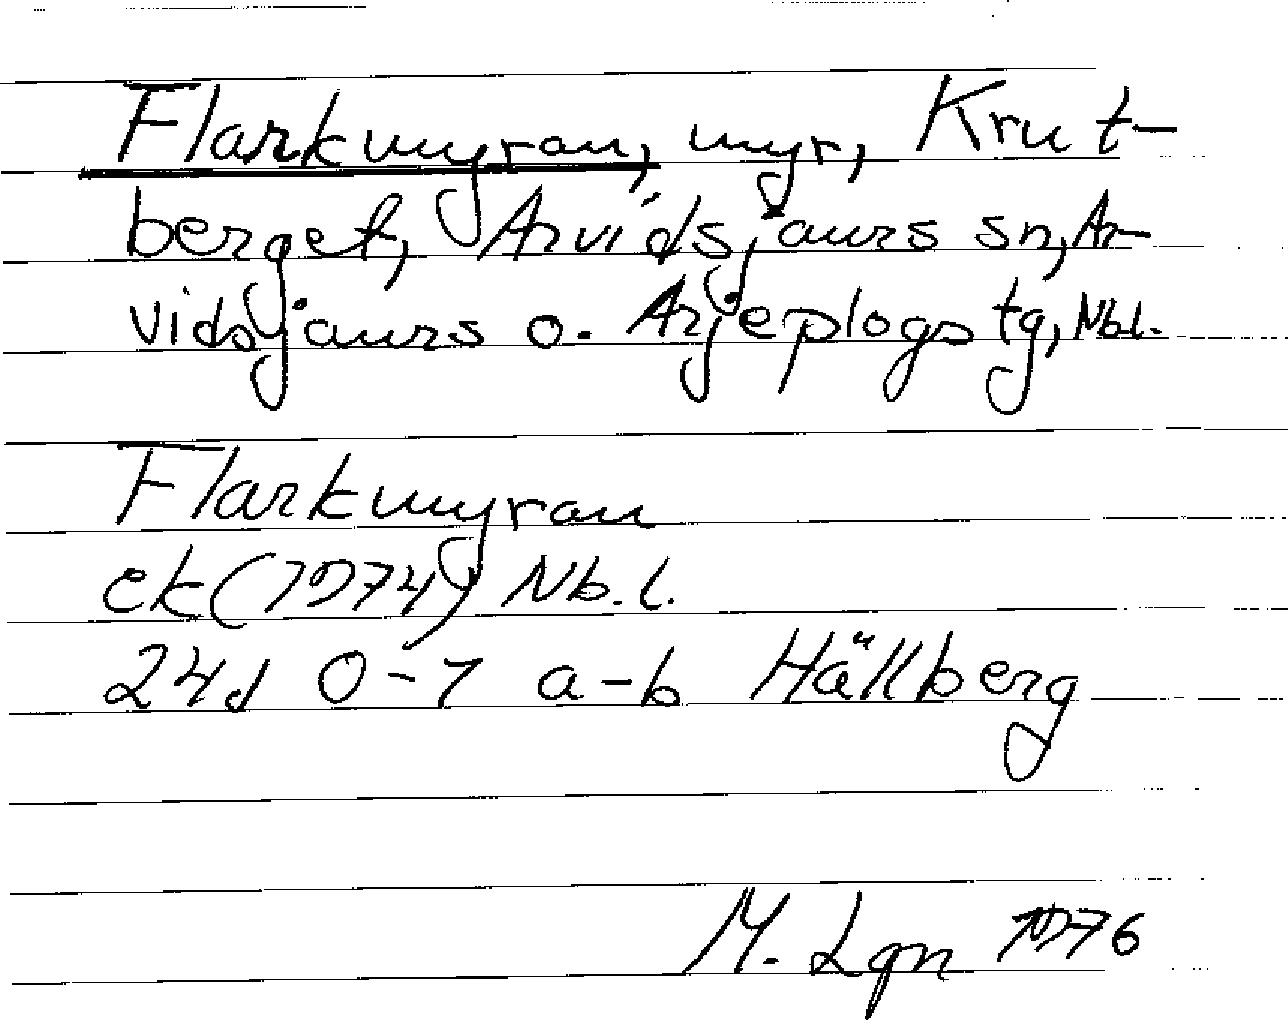 Flarkmyran, myr, Krut-
berget, Arvidsjaurs sn, Ar-
vidsjaurs o. Arjeplogs tg, Nbl.
Flarkmyran
ek (1974) Nb.l.
24d 0-1 a-b Hällberg
M. Lgn 1976